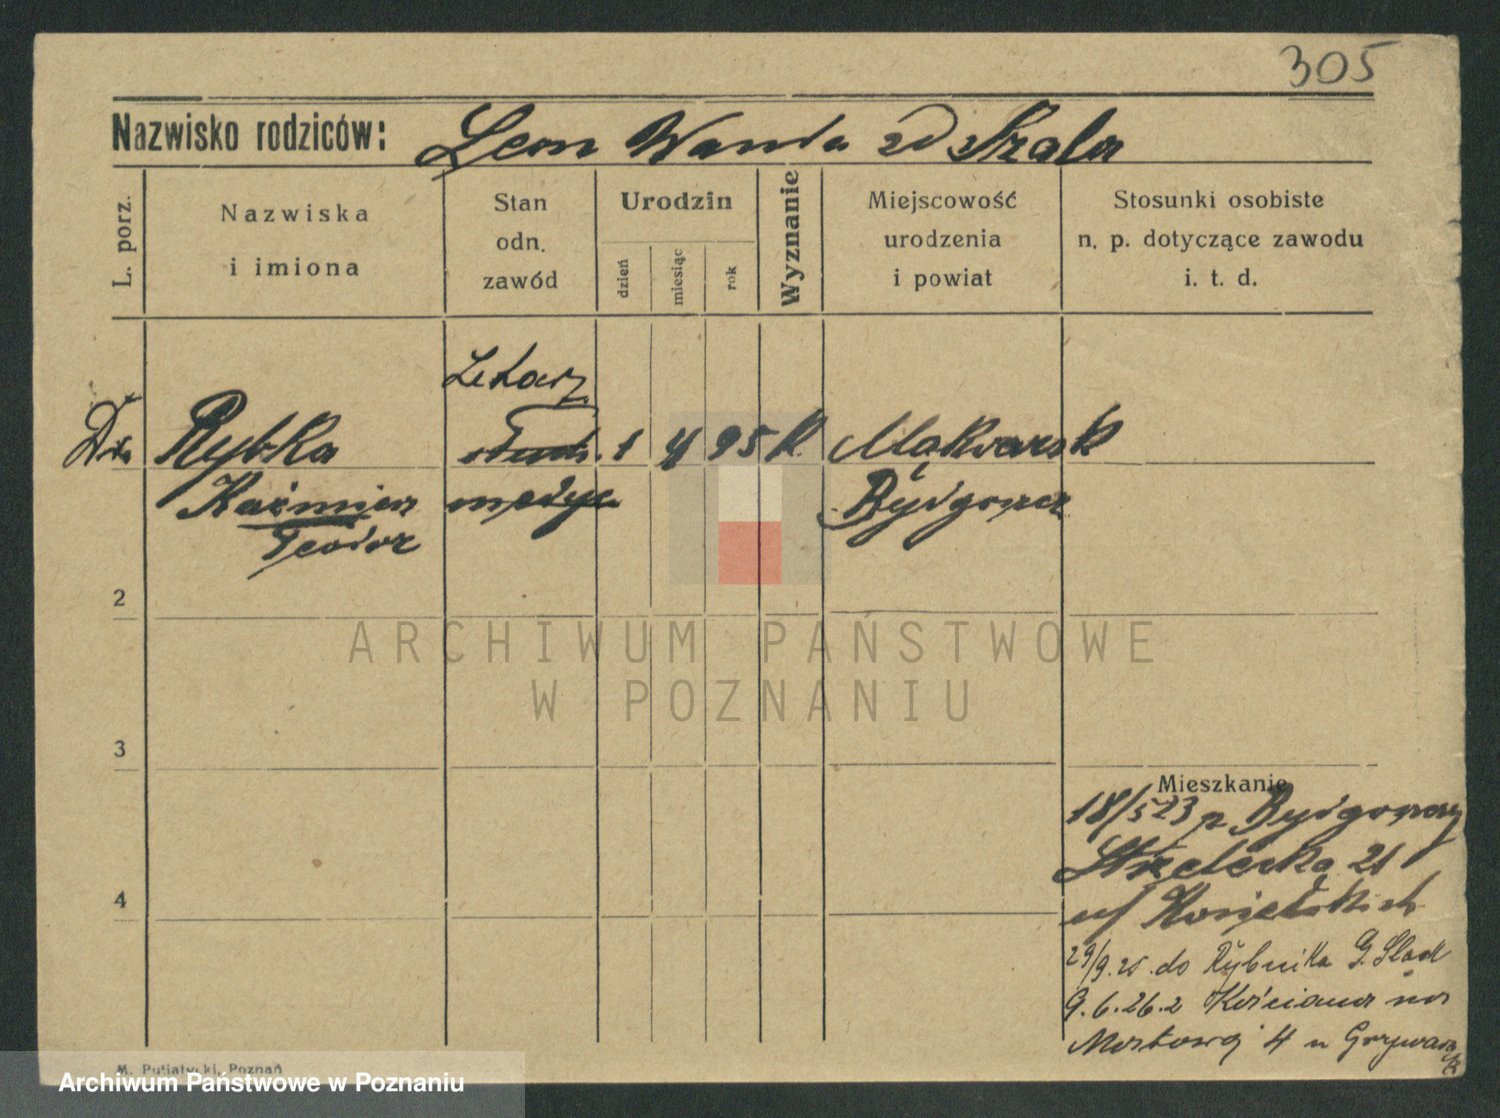 305
Nazwisko rodziców: Leon Wanda zd Szala
L. porz.
Nazwiska
i imiona
Stan
odn.
zawód
Urodzin
dzień
miesiąc
rok
Wyznanie
Miejscowość
urodzenia
i powiat
Stosunki osobiste
n. p. dotyczące zawodu
i. t. d.
Lekarz
Dr. Rybka stud. 1 4 95 k. Makwarsk
Kaźmierz medyc. Bydgoszcz
Teodor
2
ARCHIWUM PAŃSTWOWE
W POZNANIU
3
Mieszkanie
18/5 23 z Bydgoszczy
Strzelecka 21
4
u/
29/9. 25. do Rybnika G. Śląsk
9. 6. 26. z Kościana na
Mostowej 4 u
M. Putiatycki, Poznań
Archiwum Państwowe w Poznaniu